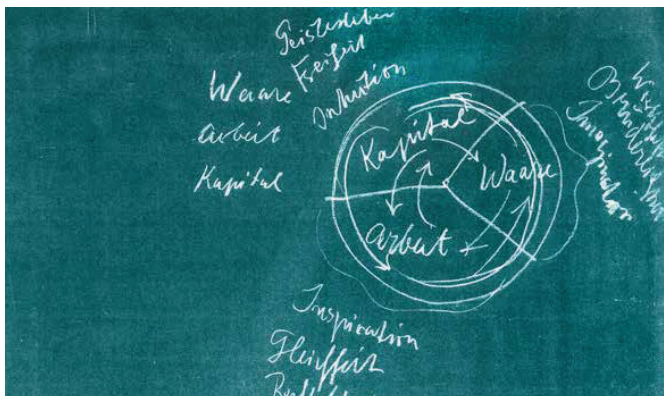 Geistesleben
Freiheit
Intuition
Waare
Arbeit
Kapital
Kapital
Waare
Arbeit
Imagination
Inspiration
Gleichheit